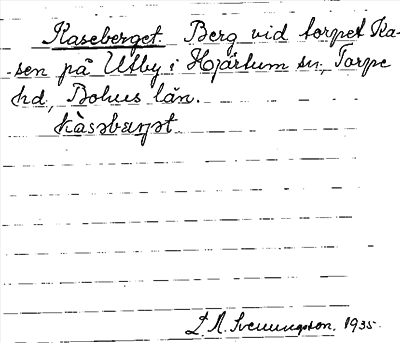 Kaseberget. Berg vid torpet Ka-
sen på Utby i Hjärtum sn., Torpe
hd, Bohus län.
kàsəbærjət
D. A. Svenungsson, 1935.